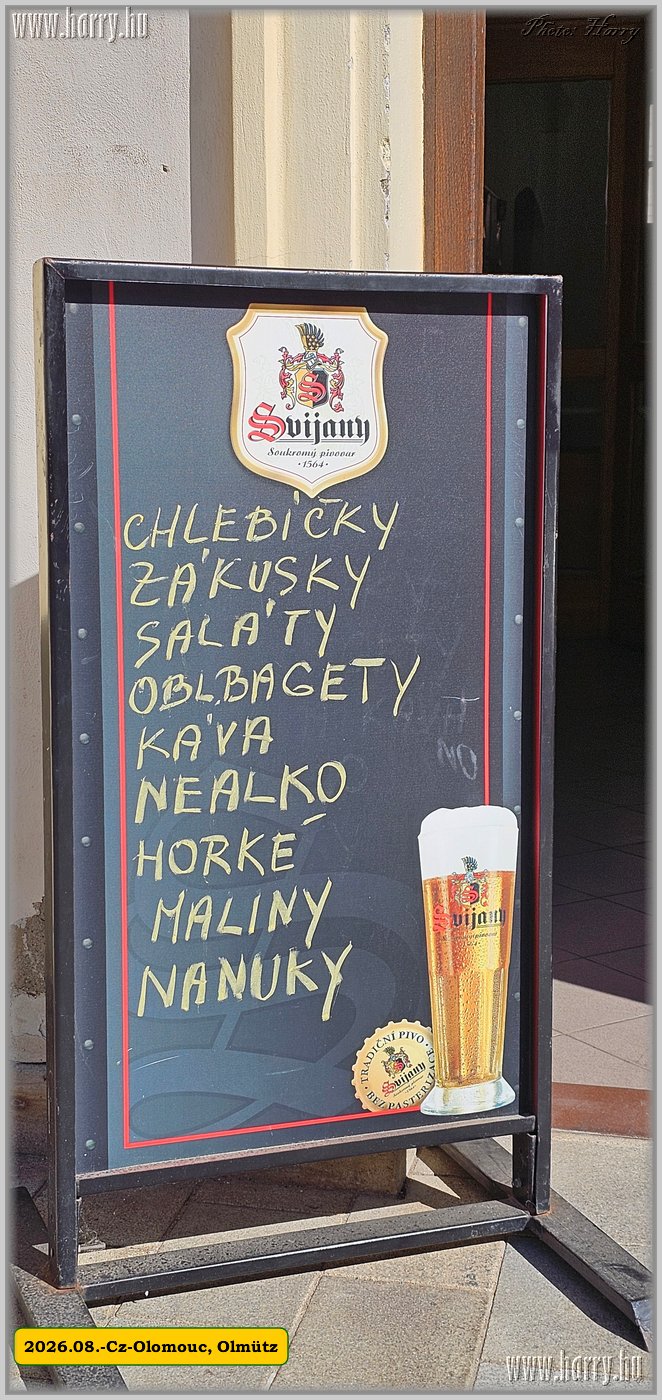 www.horry.hu
Photo: Horry
S
Svijany
Soukromý pivovar
·1564·
CHLEBÍČKY
ZÁKUSKY
SALÁTY
OBL.BAGETY
KÁVA
NEALKO
HORKÉ
MALINY
NANUKY
Svijany
TRADIČNÍ PIVO
Svijany
BEZ PASTERIZACE
2026.08.-Cz-Olomouc, Olmütz
www.horry.hu